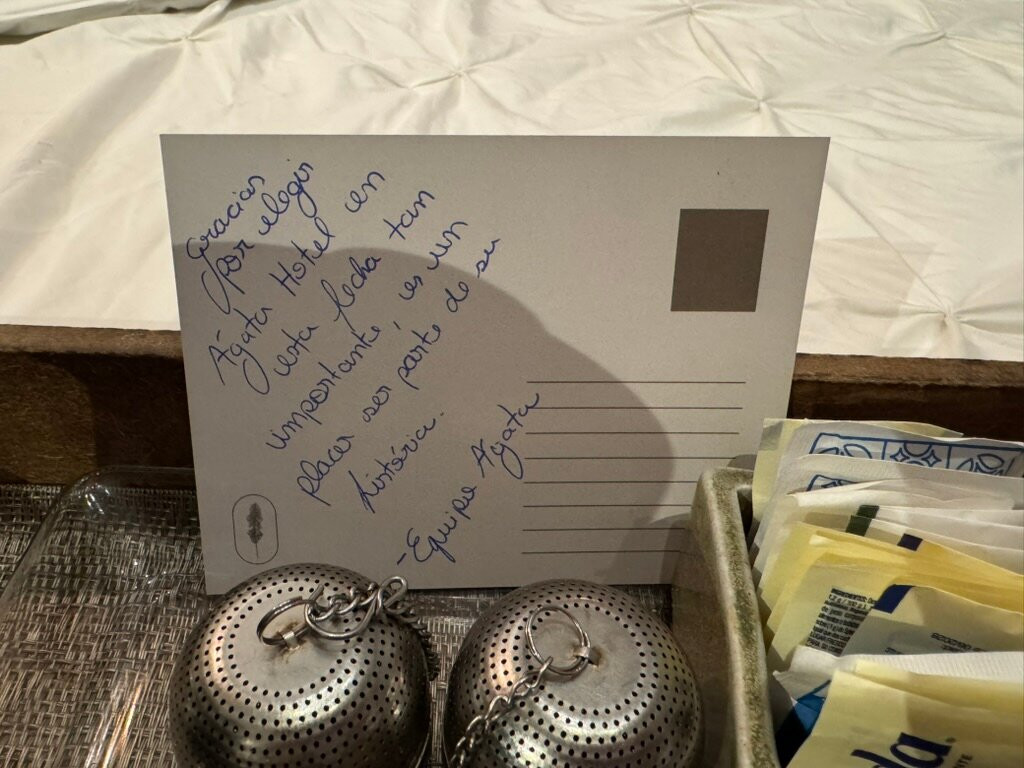 Gracias
por elegir
Ágata Hotel en
esta fecha tan
importante, es un
placer ser parte de su
história.
- Equipo Ágata
da.